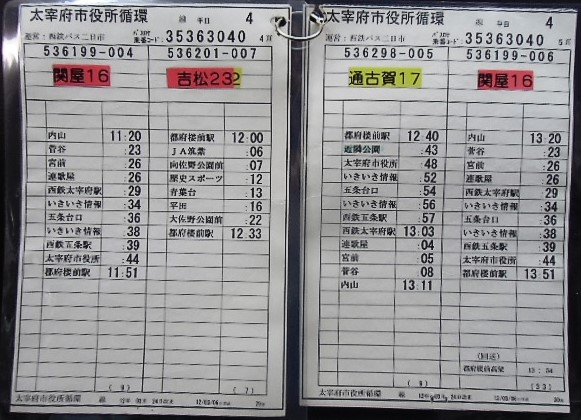 太宰府市役所循環 線 平日 4
運営:西鉄バス二日市 35363040 4頁
536199-004 536201-007
関屋16 吉松232
内山 11:20
菅谷 :23
宮前 :26
連歌屋 :26
西鉄太宰府駅 :29
いきいき情報 :34
五条台口 :36
いきいき情報 :38
西鉄五条駅 :39
太宰府市役所 :44
都府楼前駅 11:51
都府楼前駅 12:00
JA筑紫 :06
向佐野公園前 :07
歴史スポーツ :12
青葉台 :13
平田 :16
大佐野公園前 :22
都府楼前駅 12:33
(9) (7)
太宰府市役所循環 線
太宰府市役所循環 線 平日 4
運営:西鉄バス二日市 35363040 5頁
536298-005 536199-006
通古賀17 関屋16
都府楼前駅 12:40
近隣公園 :43
太宰府市役所 :48
いきいき情報 :52
五条台口 :54
いきいき情報 :56
西鉄五条駅 :57
西鉄太宰府駅 13:03
連歌屋 :04
宮前 :05
菅谷 :08
内山 13:11
内山 13:20
菅谷 :23
宮前 :26
連歌屋 :26
西鉄太宰府駅 :29
いきいき情報 :34
五条台口 :36
いきいき情報 :38
西鉄五条駅 :39
太宰府市役所 :44
都府楼前駅 13:51
(回送)
都府楼前高架 13:54
(9) (23)
太宰府市役所循環 線